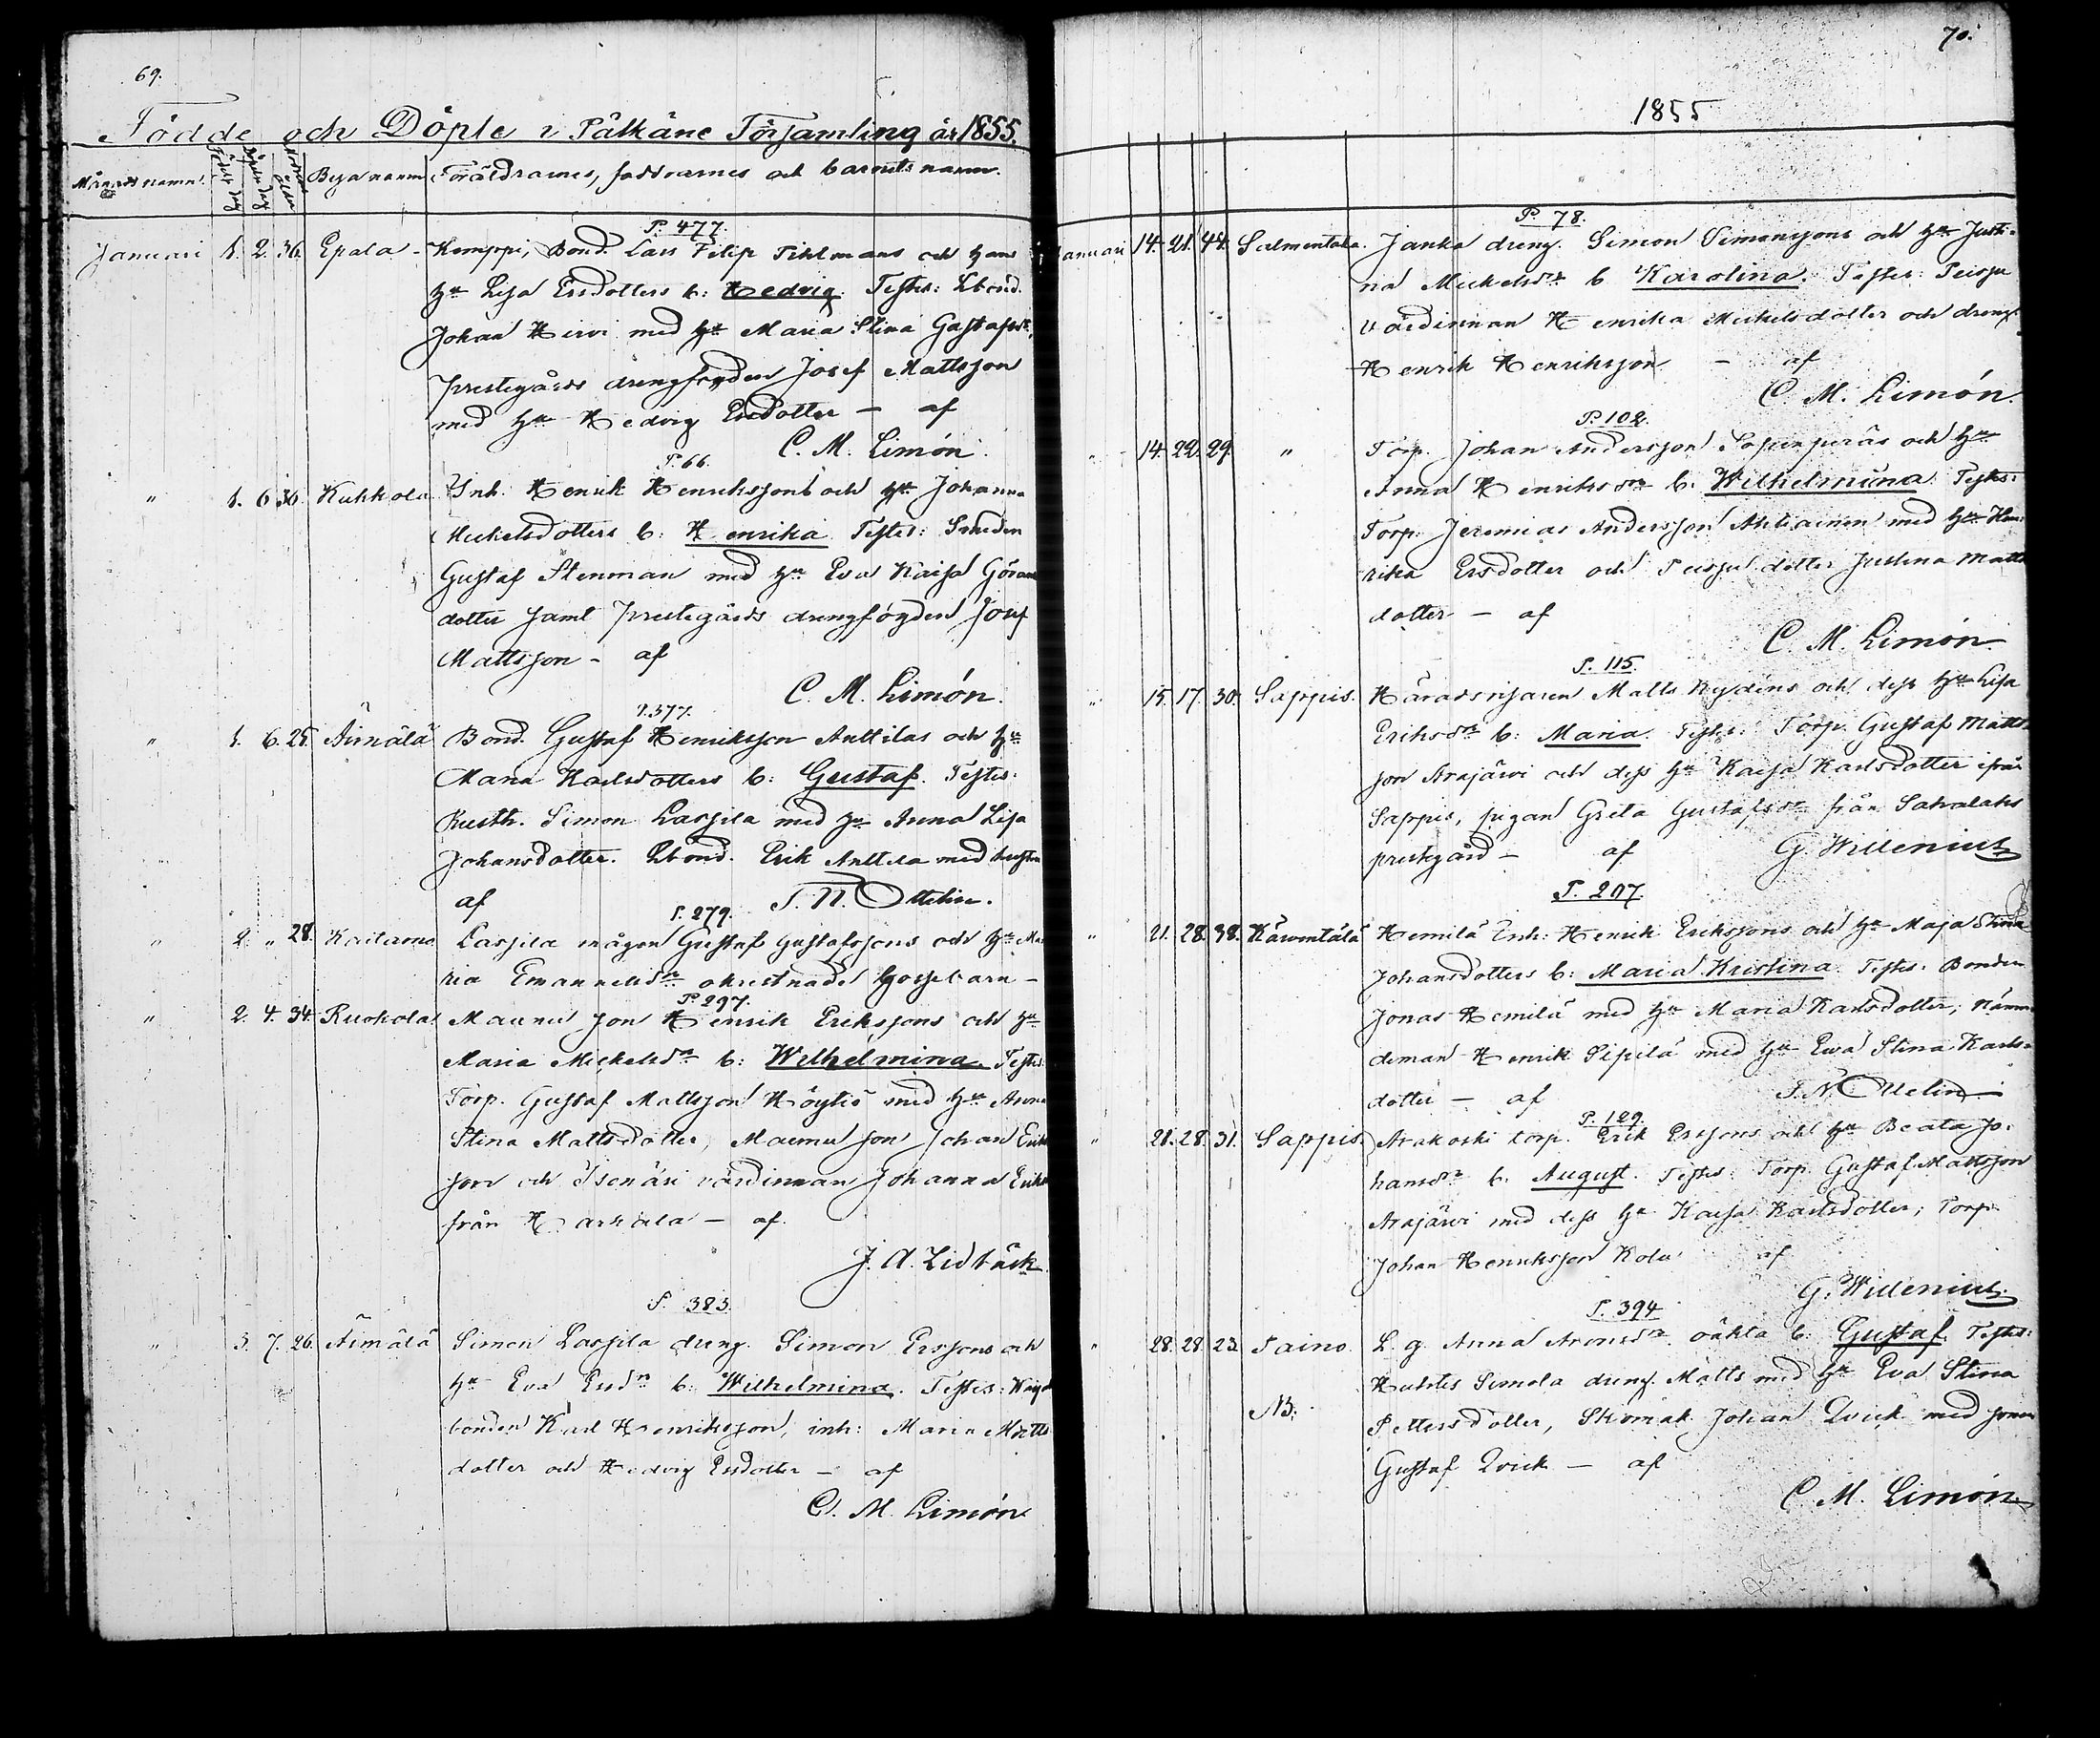 69.
Födde och Döpte i Pälkäne Församling år 1855.
Månads namn. Födelse dag Döpelse dag Modrens ålder Byanamn Föräldrarnes, faddrarnes och barnets namn.
P. 477.
Januari 1. 2. 36. Epala - Kemppi, Bond. Lars Filip Tihlmans och hans
hu Lisa Ersdotters b: Hedvig. Testes: Lbond.
Johan Hirvi med hu Maria Stina Gustafsdr,
prestegårds drengfogden Josef Mattsson
med hu Hedvig Ersdotter — af
C. M. Limón.
P. 66.
" 1. 6. 36. Kukkola Inh. Henrik Henrikssons och hu Johanna
Michelsdotters b: Henrika Testes: Smeden
Gustaf Stenman med hu Eva Kaisa Görans
dotter samt prestegårds drengfogden Josef
Mattsson - af
C. M. Limón.
P. 377.
" 1. 6. 25. Äimälä Bond. Gustaf Henriksson Anttilas och hu
Maria Karlsdotters b: Gustaf. Testes:
Rusth. Simon Lassila med hu Anna Lisa
Johansdotter. Lbond. Erik Anttila med hustru
af T. N. Ottelin.
P. 279.
" 2. " 28. Kaitamo Lassila mågen Gustaf Gustafssons och hu Ma
ria Emanuelsdrs okristnade gossebarn -
P. 297.
" 2. 4. 34. Ruokola Maunu son Henrik Erikssons och hu
Maria Michelsdrs b: Wilhelmina. Testes:
Torp. Gustaf Mattsson Höytiö med hu Anna
Stina Mattsdotter, Maunu son Johan Eriks
son och Isenäri värdinnan Johanna Eriks
från Harhala — af.
J. A. Lidbäck.
P. 383.
" 3. 7. 26. Äimälä Simon Lassila dreng. Simon Erssons och
hu Eva Ersdrs b: Wilhelmina. Testes:
bonden Karl Henriksson, inh: Maria Matts
dotter och Hedvig Ersdotter — af
C. M. Limón
70.
1855
P. 78.
Januari 14. 21. 44. Salmentaka. Janka dreng. Simon Simonssons och hu Justi-
na Michelsdrs b Karolina. Testes: Peisju
värdinnan Henrika Michelsdotter och dreng.
Henrik Henriksson — af
C. M. Limón.
P. 102.
" 14. 22. 29. " Torp. Johan Andersson Sopenperäs och hu
Anna Henriksdrs b. Wilhelmiina. Testes:
Torp. Jeremias Andersson Ahtiainen med hu Hen-
rika Ersdotter och Peisju dotter Justina Matts
dotter — af
C. M. Limón
P. 115.
" 15. 17. 30. Sappis. Häradsrisaren Matts Rydéns och dess hu Lisa
Eriksdrs b: Maria. Testes: Torp. Gustaf Matts
son Arajärvi och dess hu Kaisa Karlsdotter ifrån
Sappis, pigan Greta Gustafsdr från Sahalahti
prestegård — af G. Willenius
P. 207.
" 21. 28. 38. Kärventälä Hemilä Inh: Henrik Erikssons och hu Maja Stina
Johansdotters b: Maria Kristina. Testes: Bonden
Jonas Hemilä med hu Maria Karlsdotter, Nämn
deman Henrik Sipilä med hu Ewa Stina Karls-
dotter — af T. N. Ottelin
P. 129.
" 21. 28. 31. Sappis. Arakoski torp. Erik Erssons och hu Beata Jo-
hansdrs b. August. Testes: Torp. Gustaf Mattsson
Arajärvi med dess hu Kaisa Karlsdotter, Torp.
Johan Henriksson Kolu af
G. Willenius.
P. 394
" 28. 28. 23. Taino. L. g. Anna Aronsdrs oäkta b: Gustaf. Testes:
Huhtis Simola dreng. Matts med hu Eva Stina
NB: Pettersdotter, Skomak. Johan Qvick med sonen
Gustaf Qvick — af
C. M. Limón